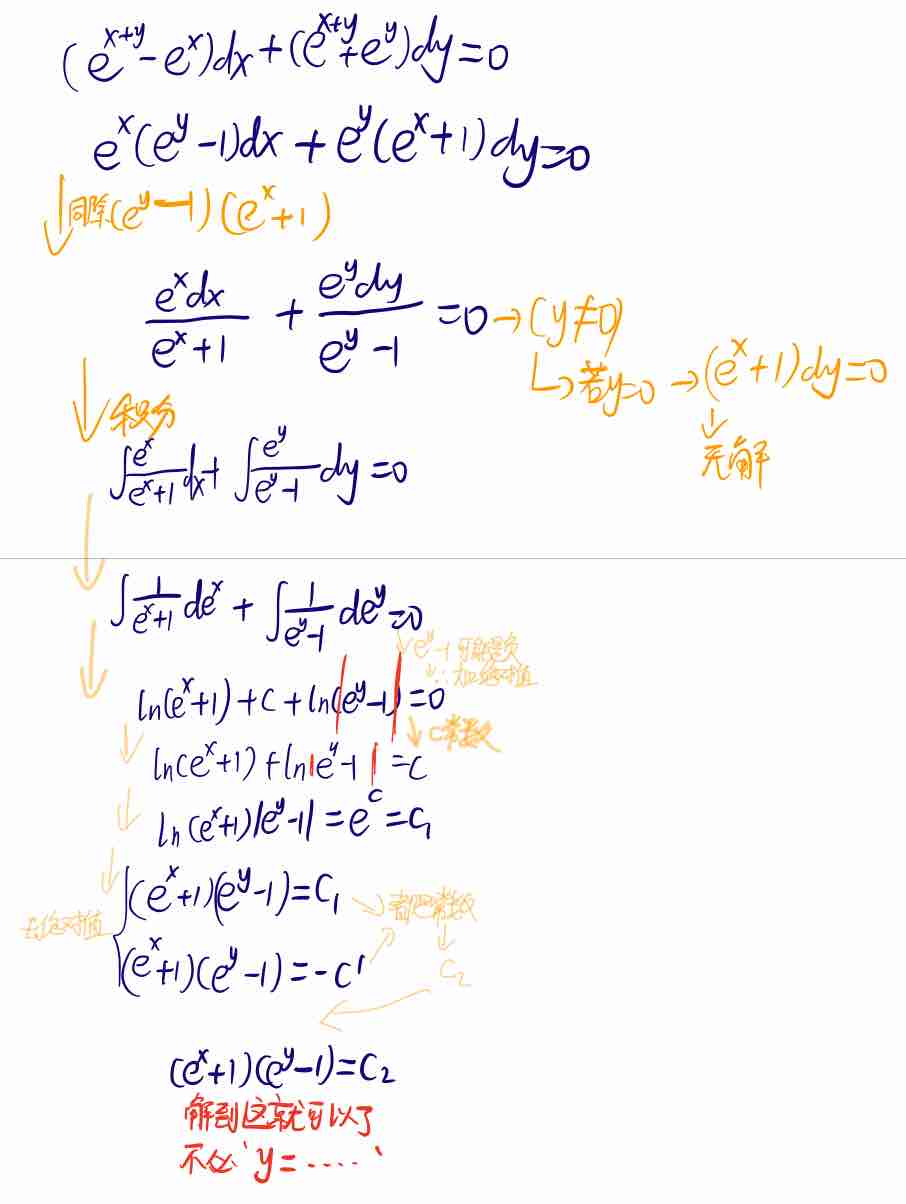 (e^{x+y} - e^x)dx + (e^{x+y} + e^y)dy = 0
e^x(e^y - 1)dx + e^y(e^x + 1)dy = 0
↓同除(e^y - 1)(e^x + 1)
\frac{e^x dx}{e^x + 1} + \frac{e^y dy}{e^y - 1} = 0 → (y ≠ 0)
↳若y=0 → (e^x + 1)dy = 0
↓积分
↓
无解
∫\frac{e^x}{e^x+1}dx + ∫\frac{e^y}{e^y-1}dy = 0
∫\frac{1}{e^x+1}de^x + ∫\frac{1}{e^y-1}de^y = 0
↓e^y-1可能是负
∴加绝对值
ln(e^x+1) + C + ln|(e^y-1)| = 0
↓C常数
ln(e^x+1) + ln|e^y-1| = C
ln(e^x+1)|e^y-1| = e^C = C_1
去绝对值
(e^x+1)(e^y-1) = C_1
都是常数
(e^x+1)(e^y-1) = -C'
C_2
(e^x+1)(e^y-1) = C_2
解到这就可以了
不必'y=......'